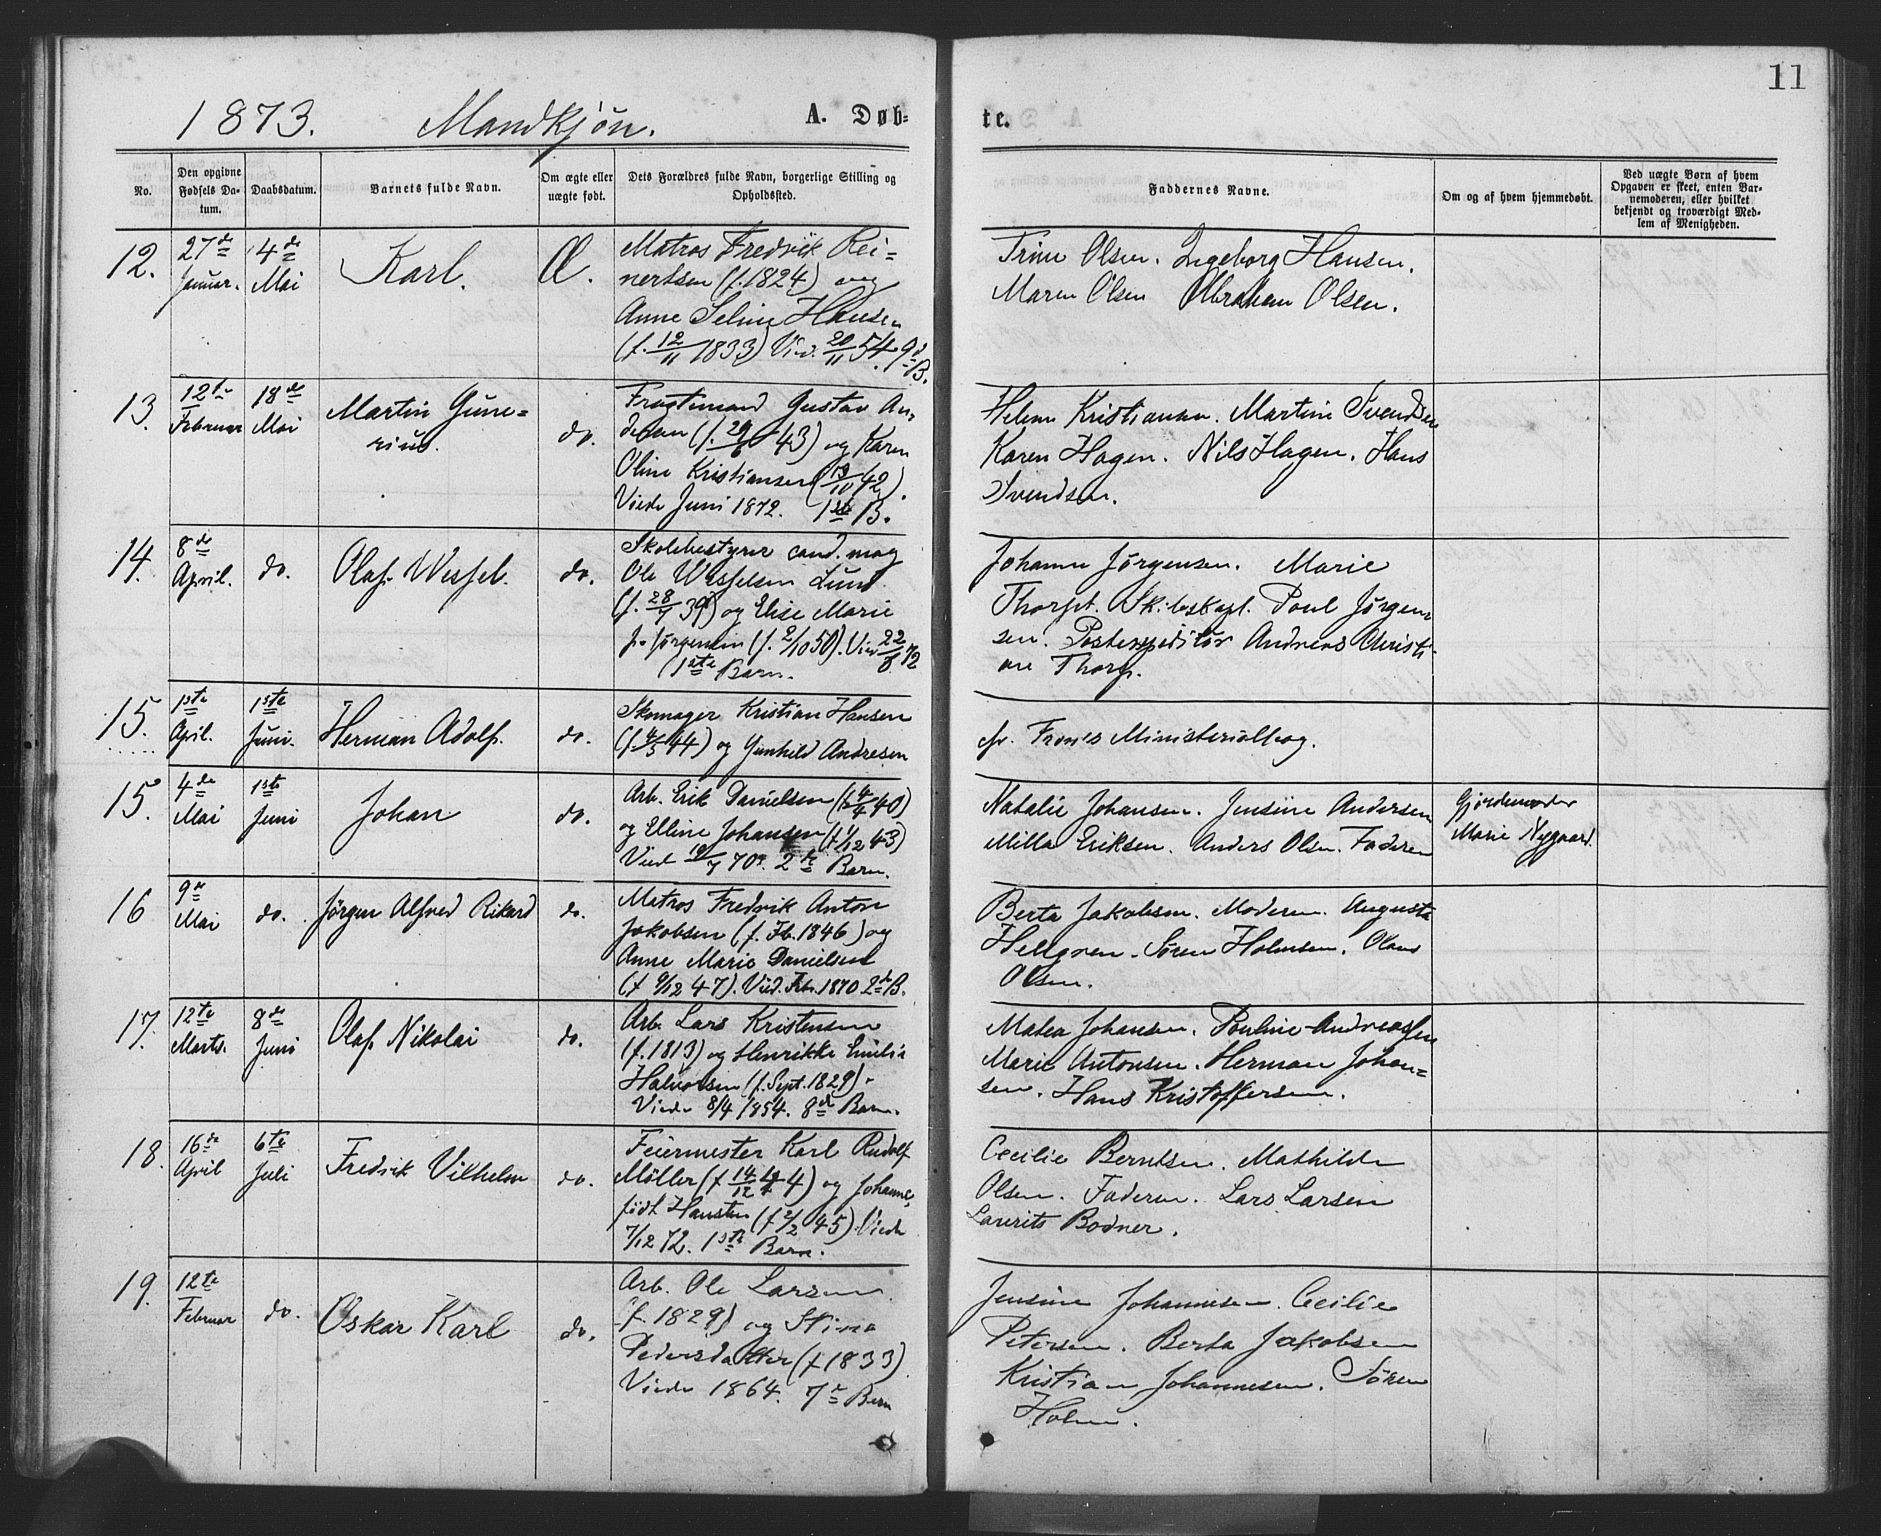 11
1873. Mandkjøn. A. Døb= te.
No.
Den opgivne Fødsels Da= tum.
Daabsdatum.
Barnets fulde Navn.
Om ægte eller uægte født.
Dets Forældres fulde Navn, borgerlige Stilling og Opholdssted.
Faddernes Navne.
Om og af hvem hjemmedøbt.
Ved uægte Børn af hvem Opgaven er skeet, enten Bar= nemoderen, eller hvilket bekjendt og troværdigt Med= lem af Menigheden.
12.
27de Januar.
4de Mai
Karl.
Æ.
Matros Fredrik Rei=
nertsen (f. 1824) og
Anne Seline Hansen
(f. 12/11 1833) Vied. 20/11 54. 9d B.
Trine Olsen. Ingeborg Hansen.
Maren Olsen Abraham Olsen.
13.
12te Februar
18de Mai
Martin Gune=
rius.
do.
Fragtemand Gustav An
dersen (f. 29/6 43) og Karen
Oline Kristiansen (13/10 42).
Viede Juni 1872. 1ste B.
Helene Kristiansen. Martine Svendsen
Karen Hagen. Nils Hagen. Hans
Svendsen.
14.
8de April.
do.
Olaf Wessel.
do.
Skolebestyrer cand. mag
Ole Wesselsen Lund
(f. 28/7 39) og Elise Marie
f. Jørgensen (f. 2/10 50). Vied 22/8 72
(1ste Barn.
Johanne Jørgensen. Marie
Thorp. Skibskapt. Poul Jørgen
sen. Postexpeditør Andreas Christi
an Thorp.
15.
1ste April.
1ste Juni.
Herman Adolf.
do.
Skomager Kristian Hansen
(f. 4/5 44) og Gunhild Andresen
cfr. Fron's Ministerialbog.
15.
4de Mai
1ste Juni
Johan
do.
Arb. Erik Danielsen (f. 4/4 40)
og Elline Johansen (f. 1/12 43)
Viet 10/7 70. 2de Barn.
Natalie Johansen. Jensine Andersen
Milla Eriksen. Anders Olsen. Faderen
Gjordemoder
Marie Nygaard.
16
9de Mai
do.
Jørgen Alfred Rikard
do.
Matros Fredrik Anton
Jakobsen (f. Fb. 1846) og
Anne Marie Danielsen
(f 9/12 47). Vied. Febr. 1870 2de B.
Berta Jakobsen. Moderen. Augusta
Hellgren. Søren Holmsen. Olaus
Olsen.
17.
12te Marts.
8de Juni
Olaf Nikolai
do.
Arb. Lars Kristensen
(f. 1813) og Henrikke Emilie
Halvorsen (f. Sept. 1829).
Viede 8/4 1854. 8de Barn.
Matea Johansen. Pauline Andreassen
Marie Antonsen. Herman Johan=
sen. Hans Kristoffersen.
18.
16de April
6te Juli
Fredrik Vilhelm
do.
Feiermester Karl Rudolf
Møller (f 14/12 44) og Johanne,
født Hansten (f 2/2 45). Viede
7/12 72. 1ste Barn.
Cecilie Berntsen. Mathilde
Olsen. Faderen. Lars Larsen
Laurits Bodner.
19.
12te Februar
do.
Oskar Karl
do.
Arb. Ole Larsen
(f. 1829) og Stine
Pedersdatter (f 1833)
Viede 1864. 7de Barn
Jensine Johannesen. Cecilie
Petersen. Berta Jakobsen
Kristian Johannesen. Søren
Holm.